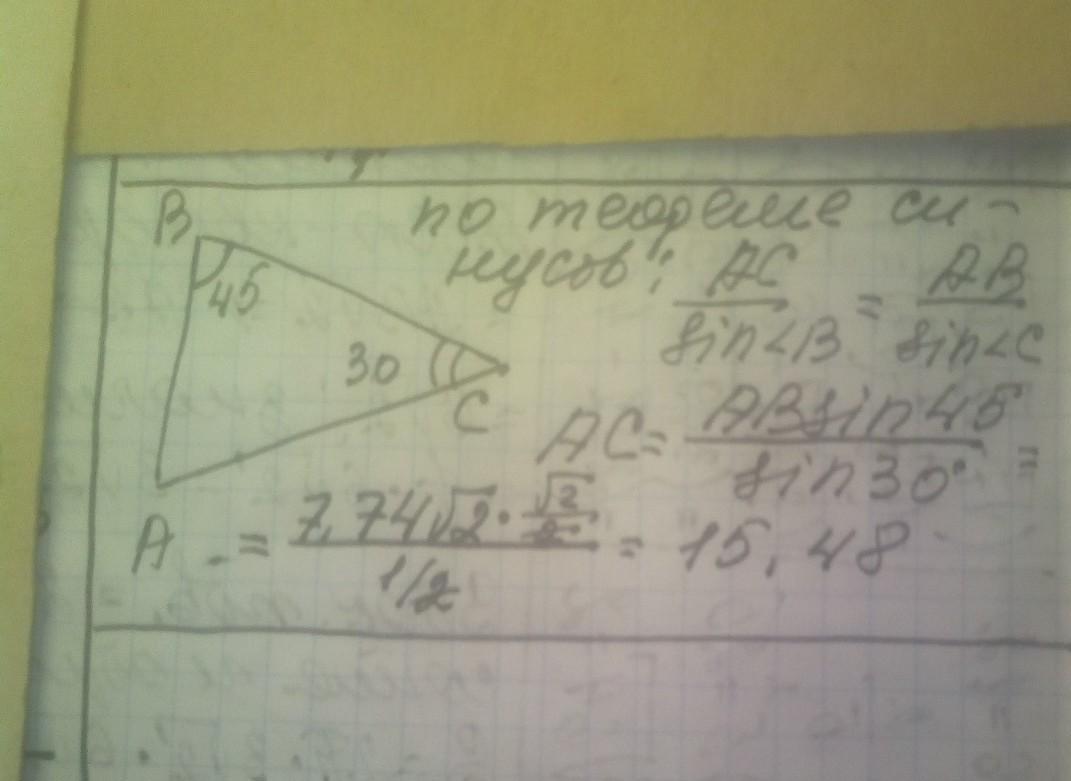 B
45
30
C
A
по теореме си-
нусов: AC/sin<B = AB/sin<C
AC = ABsin45/sin30° =
= 7,74√2·√2/2 / 1/2 = 15,48